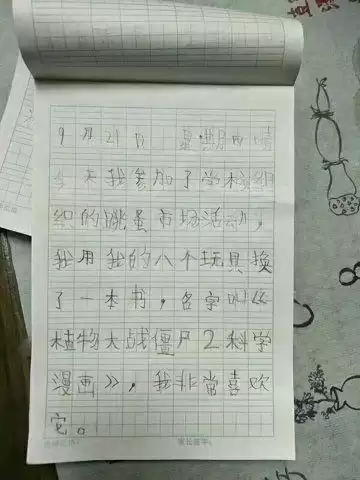 9月21日 星期四 晴
今天我参加了学校组
织的跳蚤市场活动，
我用我的八个玩具换
了一本书，名字叫《
植物大战僵尸2科学
漫画》，我非常喜欢
它。
家长签字：